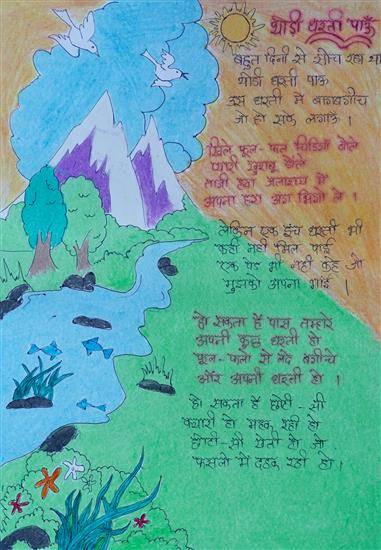 थोडी धरती पाऊँ
बहुत दिनों से सोच रहा था
थोडी धरती पाऊ
उस धरती में बागबगीच
जो हो सके लगाऊँ ।
खिले फूल-फल चिडियाँ बोले
प्यारी खुशबू डोले
ताजी हवा जलाशय में
अपना हरा अंग भिगो ले ।
लेकिन एक इंच धरती भी
कही नहीं मिल पाई
एक पेड भी नही कहे जो
मुझको अपना भाई ।
हो सकता है पास तुम्हारे
अपनी कुछ धरती हो
फूल-फलो से लदे बगीचे
और अपनी धरती हो ।
हो सकता है छोटी-सी
क्यारी हो महक रही हो
छोटी-सी खेती हो जो
फसलो में दहक रही हो ।